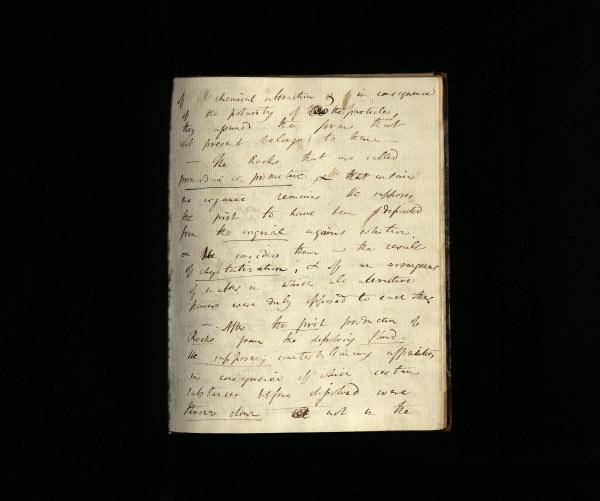 of chemical attraction & in consequence
of the polarity of the particles,
they assumed the forms that
at present belong to them. —
— The Rocks that are called
primordial or primitive & that contain
no organic remains, He supposes
the first to have been deposited
from the original aqueous solution.
& He considers them as the result
of chrystalization; & of an arrangement
of matter in which the attractive
powers were duly opposed to each other
— After the first production of
Rocks from the dissolving fluid —
He supposes, counterbalancing affinities
in consequence of which certain
substances before dissolved were
thrown down not in the